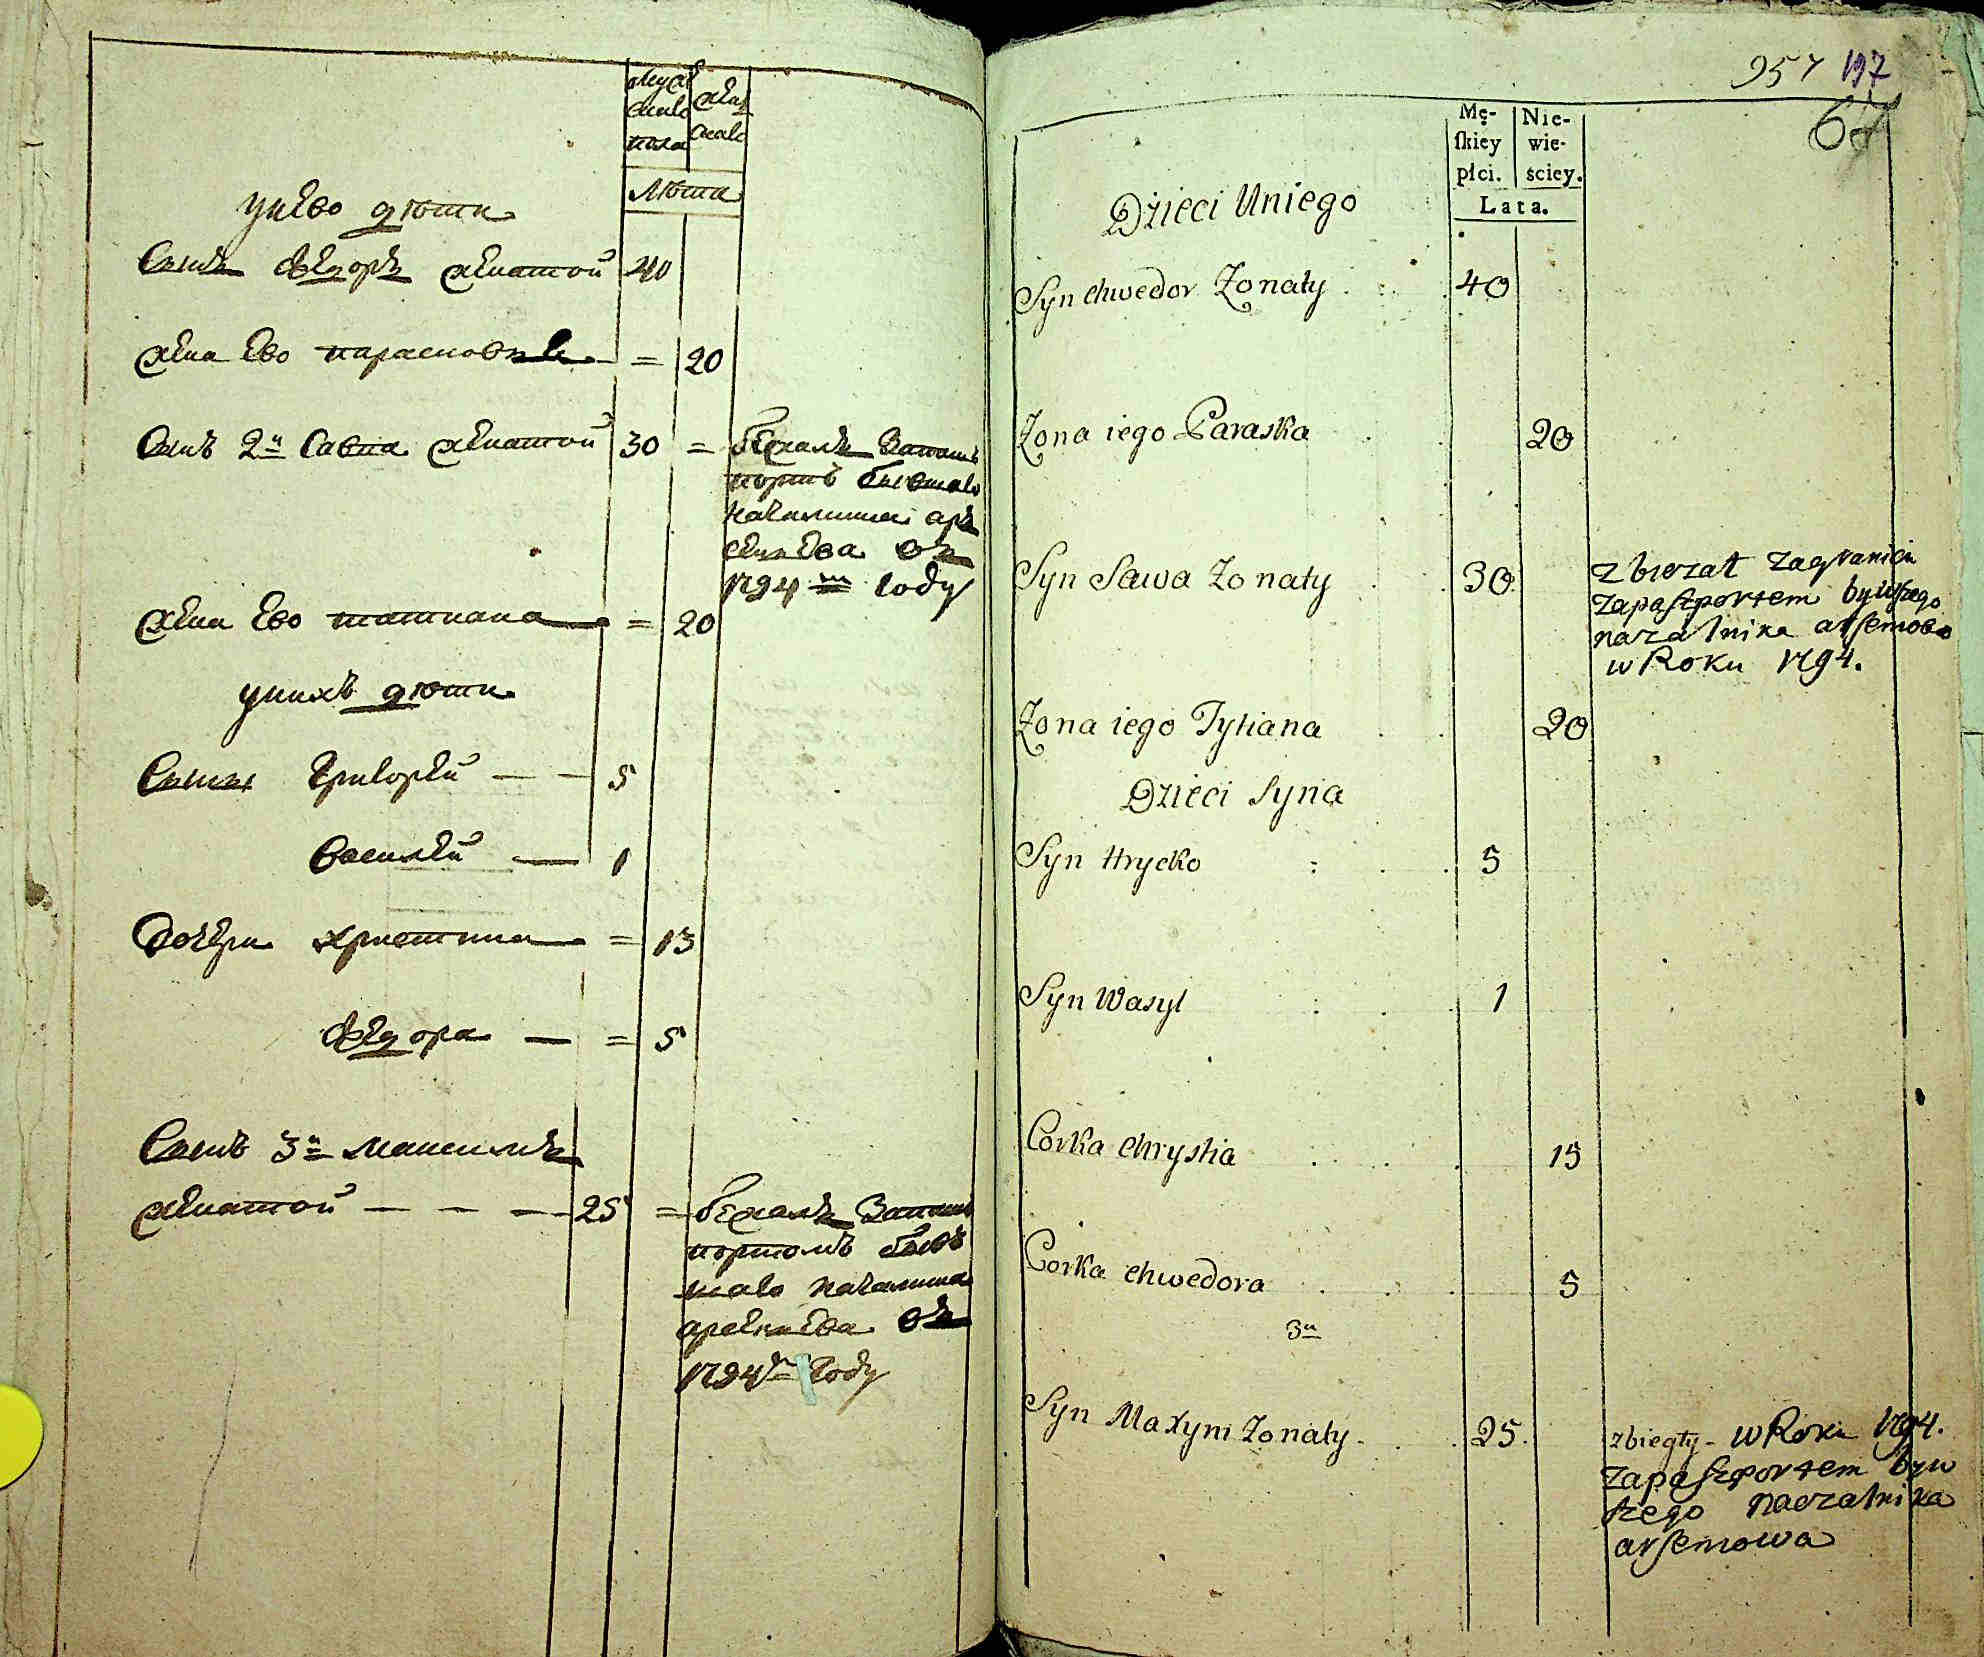 Мужеска пола
Женска
Лѣта
у нево дѣти
Сынъ Федоръ женатой 40
жена ево парасковъе = 20
Сынъ 2й Савва женатой 30 =
бежалъ Запаш
портъ бывшаго
началника аръ
сеньева въ
1794м году
жена ево татиана = 20
у нихъ дѣти
Сыны Григорей — — 5
Василей — 1
Дочери христина = 13
Федора — = 5
Сынъ 3й максимъ
женатой — — — 25 =
бежалъ Запаш
портомъ бывъ
шаго началника
арсеньева въ
1794м году
957 197
67
Mę-
ſkiey
płci.
Nie-
wie-
ściey.
Lata.
Dzieci Uniego
Syn Chwedor Żonaty 40
Żona iego Paraska 20
Syn Sawa Żonaty 30
zbieżał zagranicu
zapaſzportem bywſzego
naczalnika arſemowa
w Roku 1794.
Żona iego Tytiana 20
Dzieci Syna
Syn Hrycko 5
Syn Wasyl 1
Corka Chrystia 15
Corka Chwedora 5
3й
Syn Maxym Żonaty 25
zbiegły w Roku 1794.
zapaſzportem byw
ſzego naczalnika
arſemowa